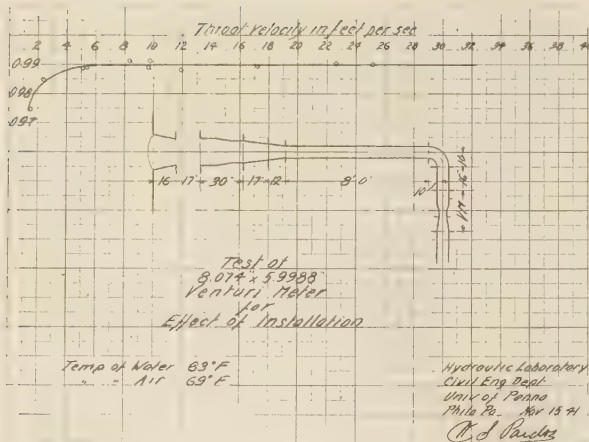 Throat Velocity in feet per sec
2 4 6 8 10 12 14 16 18 20 22 24 26 28 30 32 34 36 38 40
0.99
0.98
0.97
16" 17" 30" 17" 12" 8'-0"
10"
Test of
8.074" x 5.9988"
Venturi Meter
for
Effect of Installation
Temp of Water 69°F
" - Air 69°F
Hydraulic Laboratory
Civil Eng Dept
Univ of Penna
Phila Pa. Nov 15 41
W. S. Pardoe